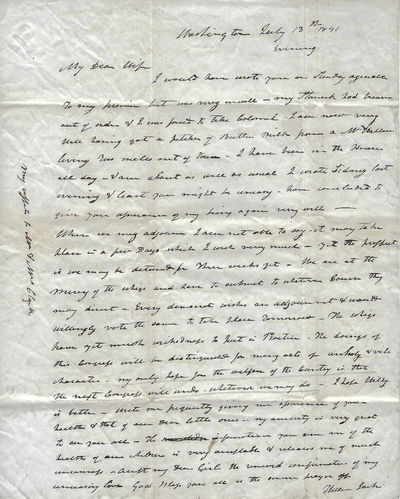 Washington July 13th 1841
Evening
My Dear Wife
I would have wrote you on Sunday agreeable
To my promise but was very unwell - my Stomach had become
out of order & I was forced to take Calomel I am now very
Well having got a pitcher of Butter Milk from a Mr
living two miles out of Town - I have been in the House
all day - & am about as well as usual I wrote Sidney last
evening & least you might be uneasy have concluded to
give you assurance of my being again very well -
When we may adjourn I am not able to say - it may take
place in a few Days which I wish very much - yet the prospect
is we may be detained for three weeks yet - We are at the
Mercy of the whigs and have to submit to whatever Course they
may direct - Every democrat wishes an adjournment & would
willingly vote the same to take place tomorrow - The whigs
have yet much wickedness to put in Practice - The doings of
this Congress will be distinguished for many acts of unholy & vile
character - my only hope for the welfare of the Country is that
the next Congress will undo whatever we may do - I hope Willy
is better - Write me frequently giving me assurance of your
health & that of our Dear little ones - my anxiety is very great
to see you all - The information you give me of the
health of our children is very acceptable & relieves me of much
uneasiness - Accept my Dear Girl the renewed confirmation of my
unceasing love God bless you all is the sincere prayer of